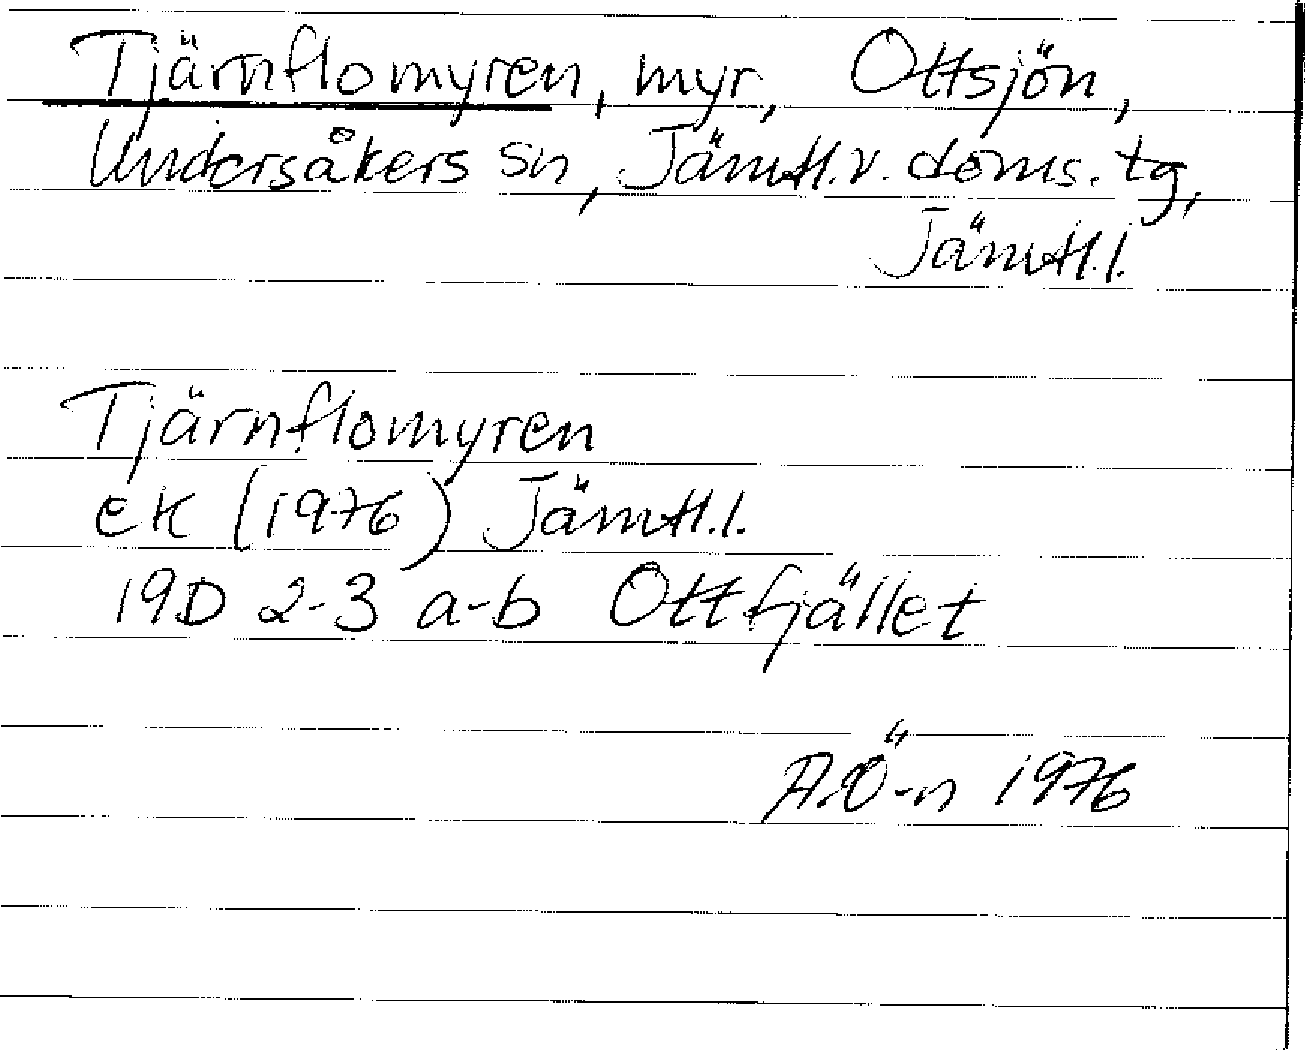 Tjärnflomyren, myr, Ottsjön,
Undersåkers sn, Jämtl.v. doms. tg,
Jämtl.l.
Tjärnflomyren
ek (1976) Jämtl.l.
19D 2-3 a-b Ottfjället
A.Ö-n 1976